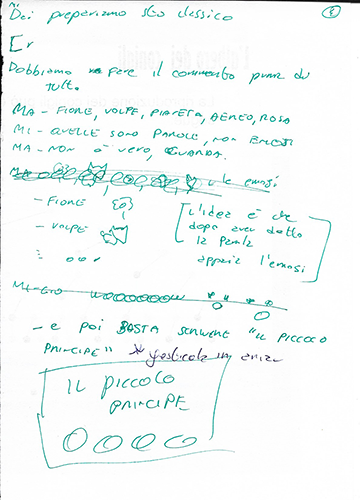 MI
Dai prepariamo sto classico
Dobbiamo fare il commento prima di
tutto.
MA - FIORE, VOLPE, PIANETA, AEREO, ROSA
MI - QUELLE SONO PAROLE, NON EMOJI
MA - NON È VERO, GUARDA.
le emoji
- FIORE
- VOLPE
L'idea è che
dopo aver detto
la parola
appare l'emoji
- e poi BASTA SCRIVERE "IL PICCOLO
PRINCIPE"
IL PICCOLO
PRINCIPE